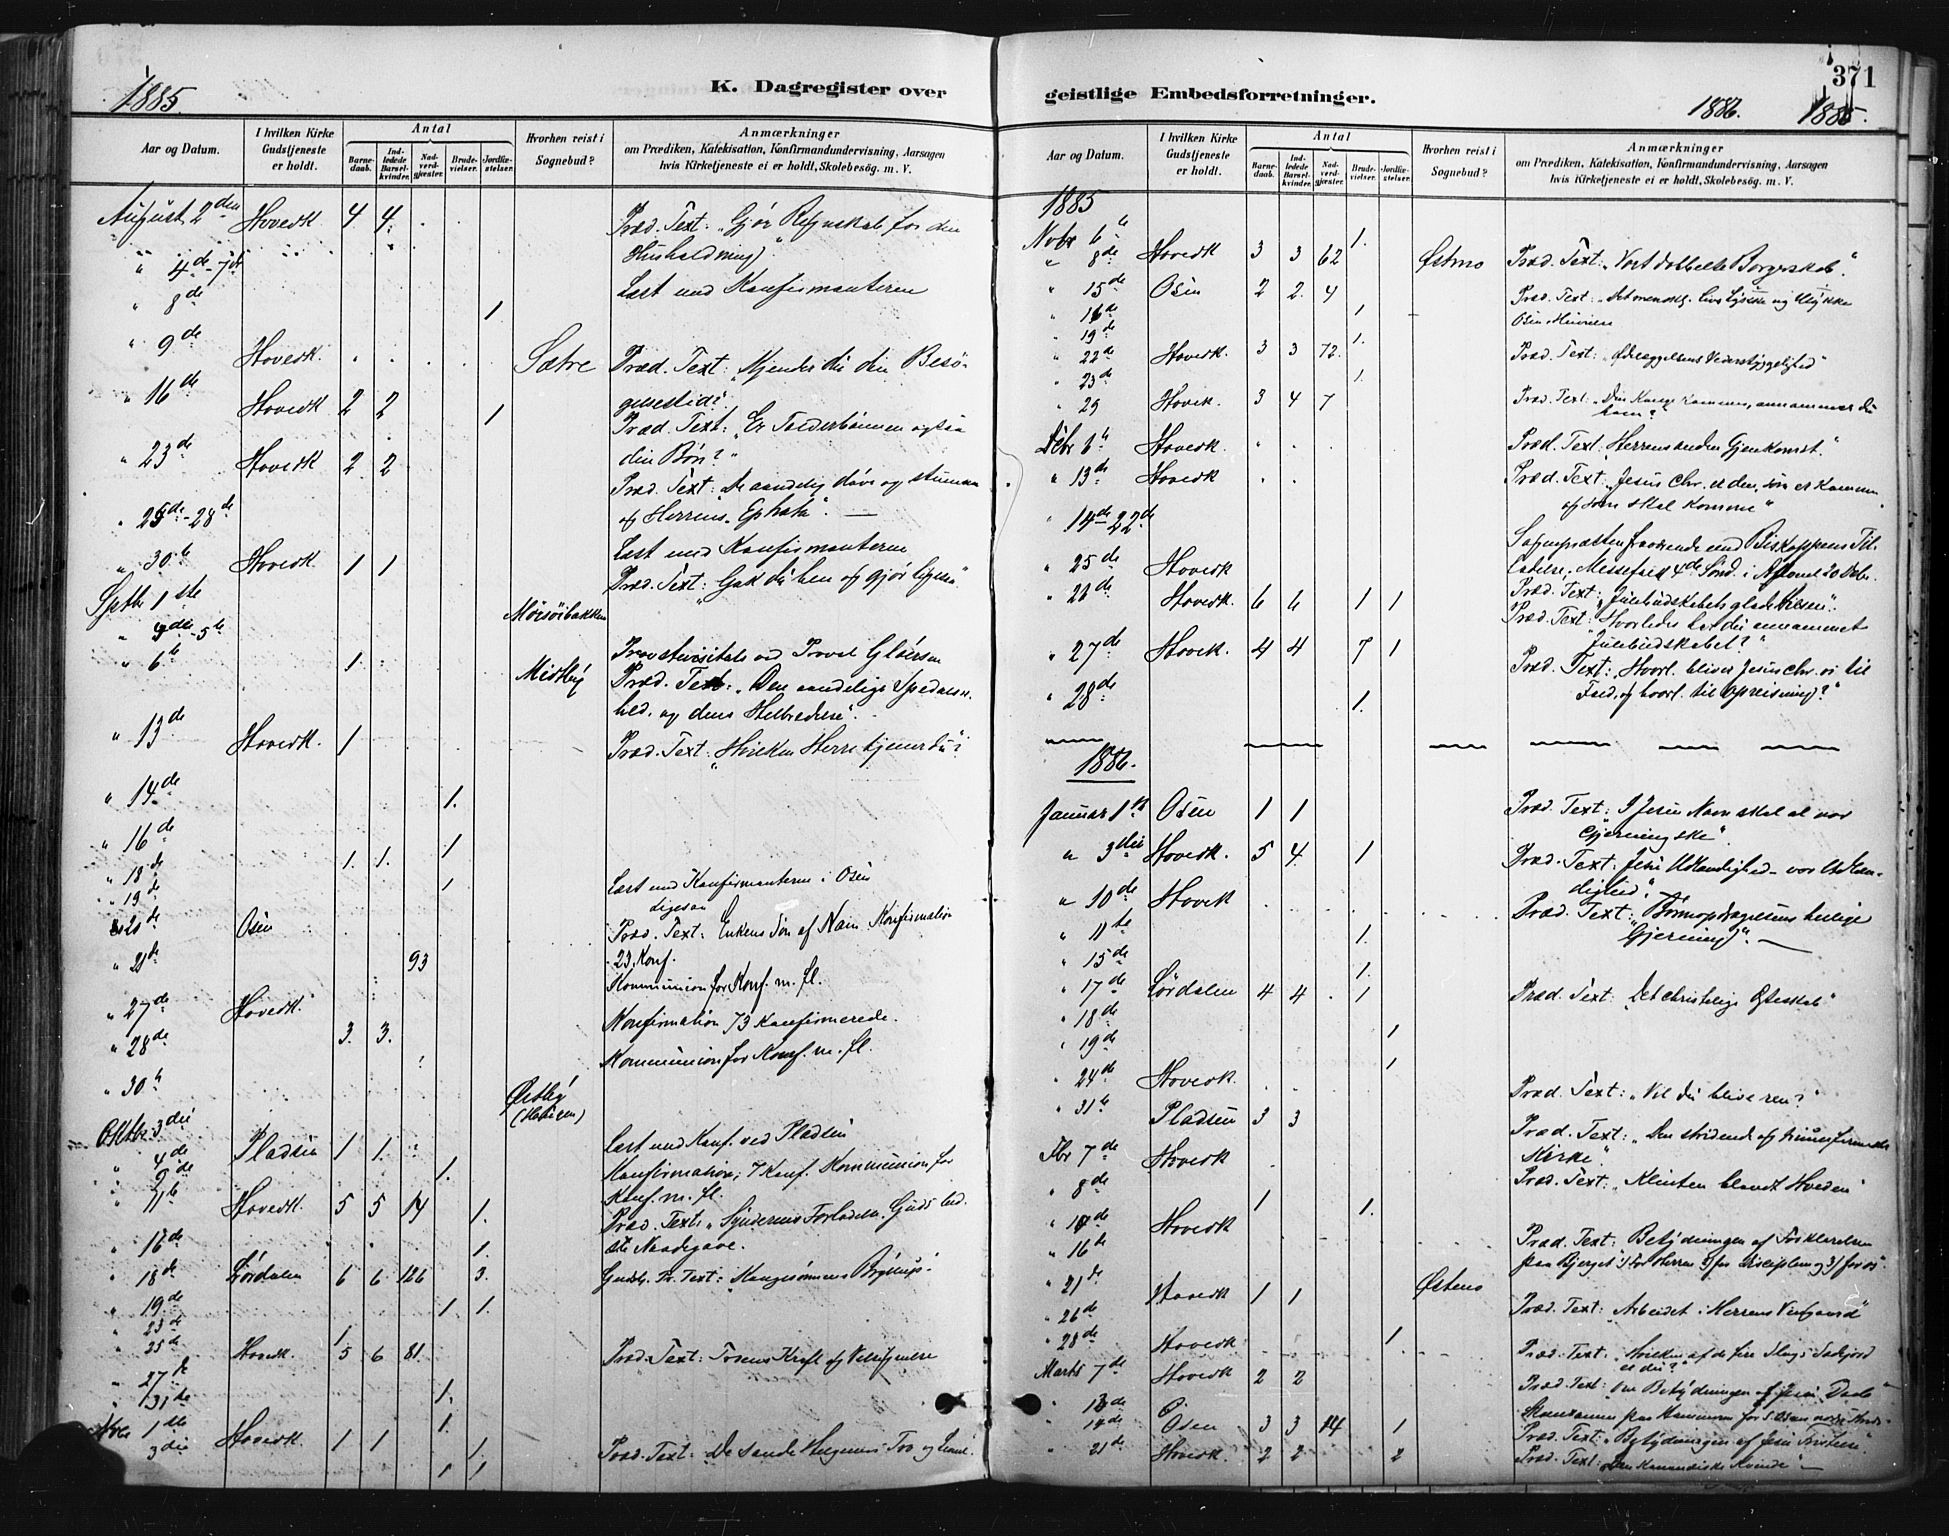 1885.
K. Dagregister over
Aar og Datum.
I hvilken Kirke Gudstjeneste er holdt.
Antal
Barne-daab.
Ind-ledede Barsel-kvinder.
Nad-verd-gjæster.
Brude-vielser.
Jordfæ-stelser.
Hvorhen reist i Sognebud?
Anmærkninger
om Prædiken, Katekisation, Konfirmandundervisning, Aarsagen
hvis Kirketjeneste ei er holdt, Skolebesøg. m. V.
August 2den Hovedk 4 4 Præd. Text: "Gjør Regnskab for din
Husholdning".
" 4de-7de Læst med Konfirmanterne
" 8de 1
" 9de Hovedk. Sætre Præd. Text: "Kjender du din Besø-
gelsestid?
" 16de Hovedk 2 2 1 Præd. Text: "Er Tolderbønnen ogsaa
din Bøn?"
" 23de Hovedk 2 2 Præd. Text: De aandelig døve og stumme
og Herrens "Ephata".
" 25de-28de Læst med Konfirmanterne
" 30te Hovedk 1 1 Præd. Text: "Gak du hen og gjør ligesaa"
Septbr 1ste
" 5te
" 6te 1 Provstevisitats ved Provst
Præd. Text: "Den aandelige Spedalsk-
hed, og dens Helbredelse".
" 13de Hovedk. 1 Præd. Text: "Hvilken Herre tjener du"?
" 14de 1.
" 16de 1
" 18de 1. 1.
" 19de 1 Læst med Konfirmanterne i Osen
ligesaa
20de Osen Præd. Text: Enkens Søn af Nain. Konfirmation
23 Konf.
" 21de 93 Kommunion for Konf. m. fl.
" 27de Hovedk. 3. 3. Konfirmation 73 Konfirmerede.
" 28de Kommunion for Konf. m. fl.
" 30te Østby
Oktbr 3die Læst med Konf. ved Pladsen
" 4de Pladsen 1 1. Konfirmation; 7 Konf. Kommunion for
Konf. m. fl.
1.
" 11te Hovedk. 5 5 14 1. Præd. Text: "Syndernes Forladelse Guds bed-
ste Naadegave.
" 16de 1.
" 18de Lørdalen 6 6 126 3. Text: "Kongesønnens Bryllup"
" 19de 1 1.
" 23de 1
" 25de Hovedk. 5 6 81. Præd. Text: Troens Kraft og Velsignelse
" 27de 1.
" 31de 1.
1ste Hovedk. 1 1 1 Præd. Text: De sande Helgenes Tro og
3die 1 1
geistlige Embedsforretninger.
371
1886. 1885.
Aar og Datum.
I hvilken Kirke Gudstjeneste er holdt.
Antal
Barne-daab.
Ind-ledede Barsel-kvinder.
Nad-verd-gjæster.
Brude-vielser.
Jordfæ-stelser.
Hvorhen reist i Sognebud?
Anmærkninger
om Prædiken, Katekisation, Konfirmandundervisning, Aarsagen
hvis Kirketjeneste ei er holdt, Skolebesøg. m. V.
1885
Novbr 6te 1.
" 8de Hovedk 3 3 62 Østmo Præd. Text: "Vort dobbelte Borgerskab".
" 15de Osen 2 2. 4 Præd. Text: Lykke og Ulykke
" 16de 1
" 19de 1.
" 22de Hovedk. 3 3 72. Præd. Text: "Ødelæggelsens Vederstyggelighed"
" 23de 1.
" 29 Hovek. 3 4 7 Præd. Text: "Din Konge kommer, annammer du
ham?"
Debr 6te Hovedk. Præd. Text: Herrens anden Gjenkomst".
" 13de Hovedk Præd. Text: "Jesus Chr. er den, som er kommen
og som skal komme"
" 14de-22de Sognepræsten fraværende med Biskoppens Til-
ladelse; Messefald 4de Sønd. i Advent 20 Debr.
" 25de Hovedk Præd. Text: "Julebudskabets glade".
" 26de Hovedk. 6 6 1 1 Præd. Text: "Hvorledes har du annammet
Julebudskabet?"
" 27de Hovek. 4 4 7 1 Præd. Text: "Hvorl. bliver Jesus Chr. os til
Fald, og hvorl. til Opreisning?"
" 28de 1.
1886.
Januar 1ste Osen 1 1 Præd. Text: I Jesu Navn skal al vor
Gjerning ske".
" 3die Hovedk. 5 4. 1 Præd. Text: Jesu Udlændighed - vor Udlæn-
dighed".
" 10de Hovek Præd. Text: "Børneopdragelsens hellige
Gjerning".
" 11te 1.
" 15de 1.
" 17de Lørdalen 4 4 1 Præd. Text: "Det christelige Ægteskab"
" 18de 1
" 19de 1
" 24de Hovedk. Præd. Text: "Vil du blive ren?
" 31te Pladsen 3 3 Præd. Text: "Den stridende og triumferende
Kirke"
Fbr 7de Hovedk Præd. Text: "Klinten blandt Hveden"
" 8de 1 1.
" 14de Hovedk Præd. Text: Betydningen af Forklarelsen
paa Bjerget 1) for Herren 2) for Disciplene og 3) for os".
" 16de
" 21de Hovedk 1 1 Østmo Præd. Text: "Arbeidet i Herrens Vingaard"
" 26de 1
" 28de Hovedk Præd. Text: "Hvilken af de fire Slags Sædejord
er du?"
Marts 7de Hovedk 2 2 Præd. Text: Om Betydningen af Jesu Daab
" 13de
" 14de Osen 3 3 14 1 Præd. Text: "Betydningen af Jesu Fristelse".
" 21de Hovedk. 2 2 2 Præd. Text: "Den Kananæiske Kvinde"